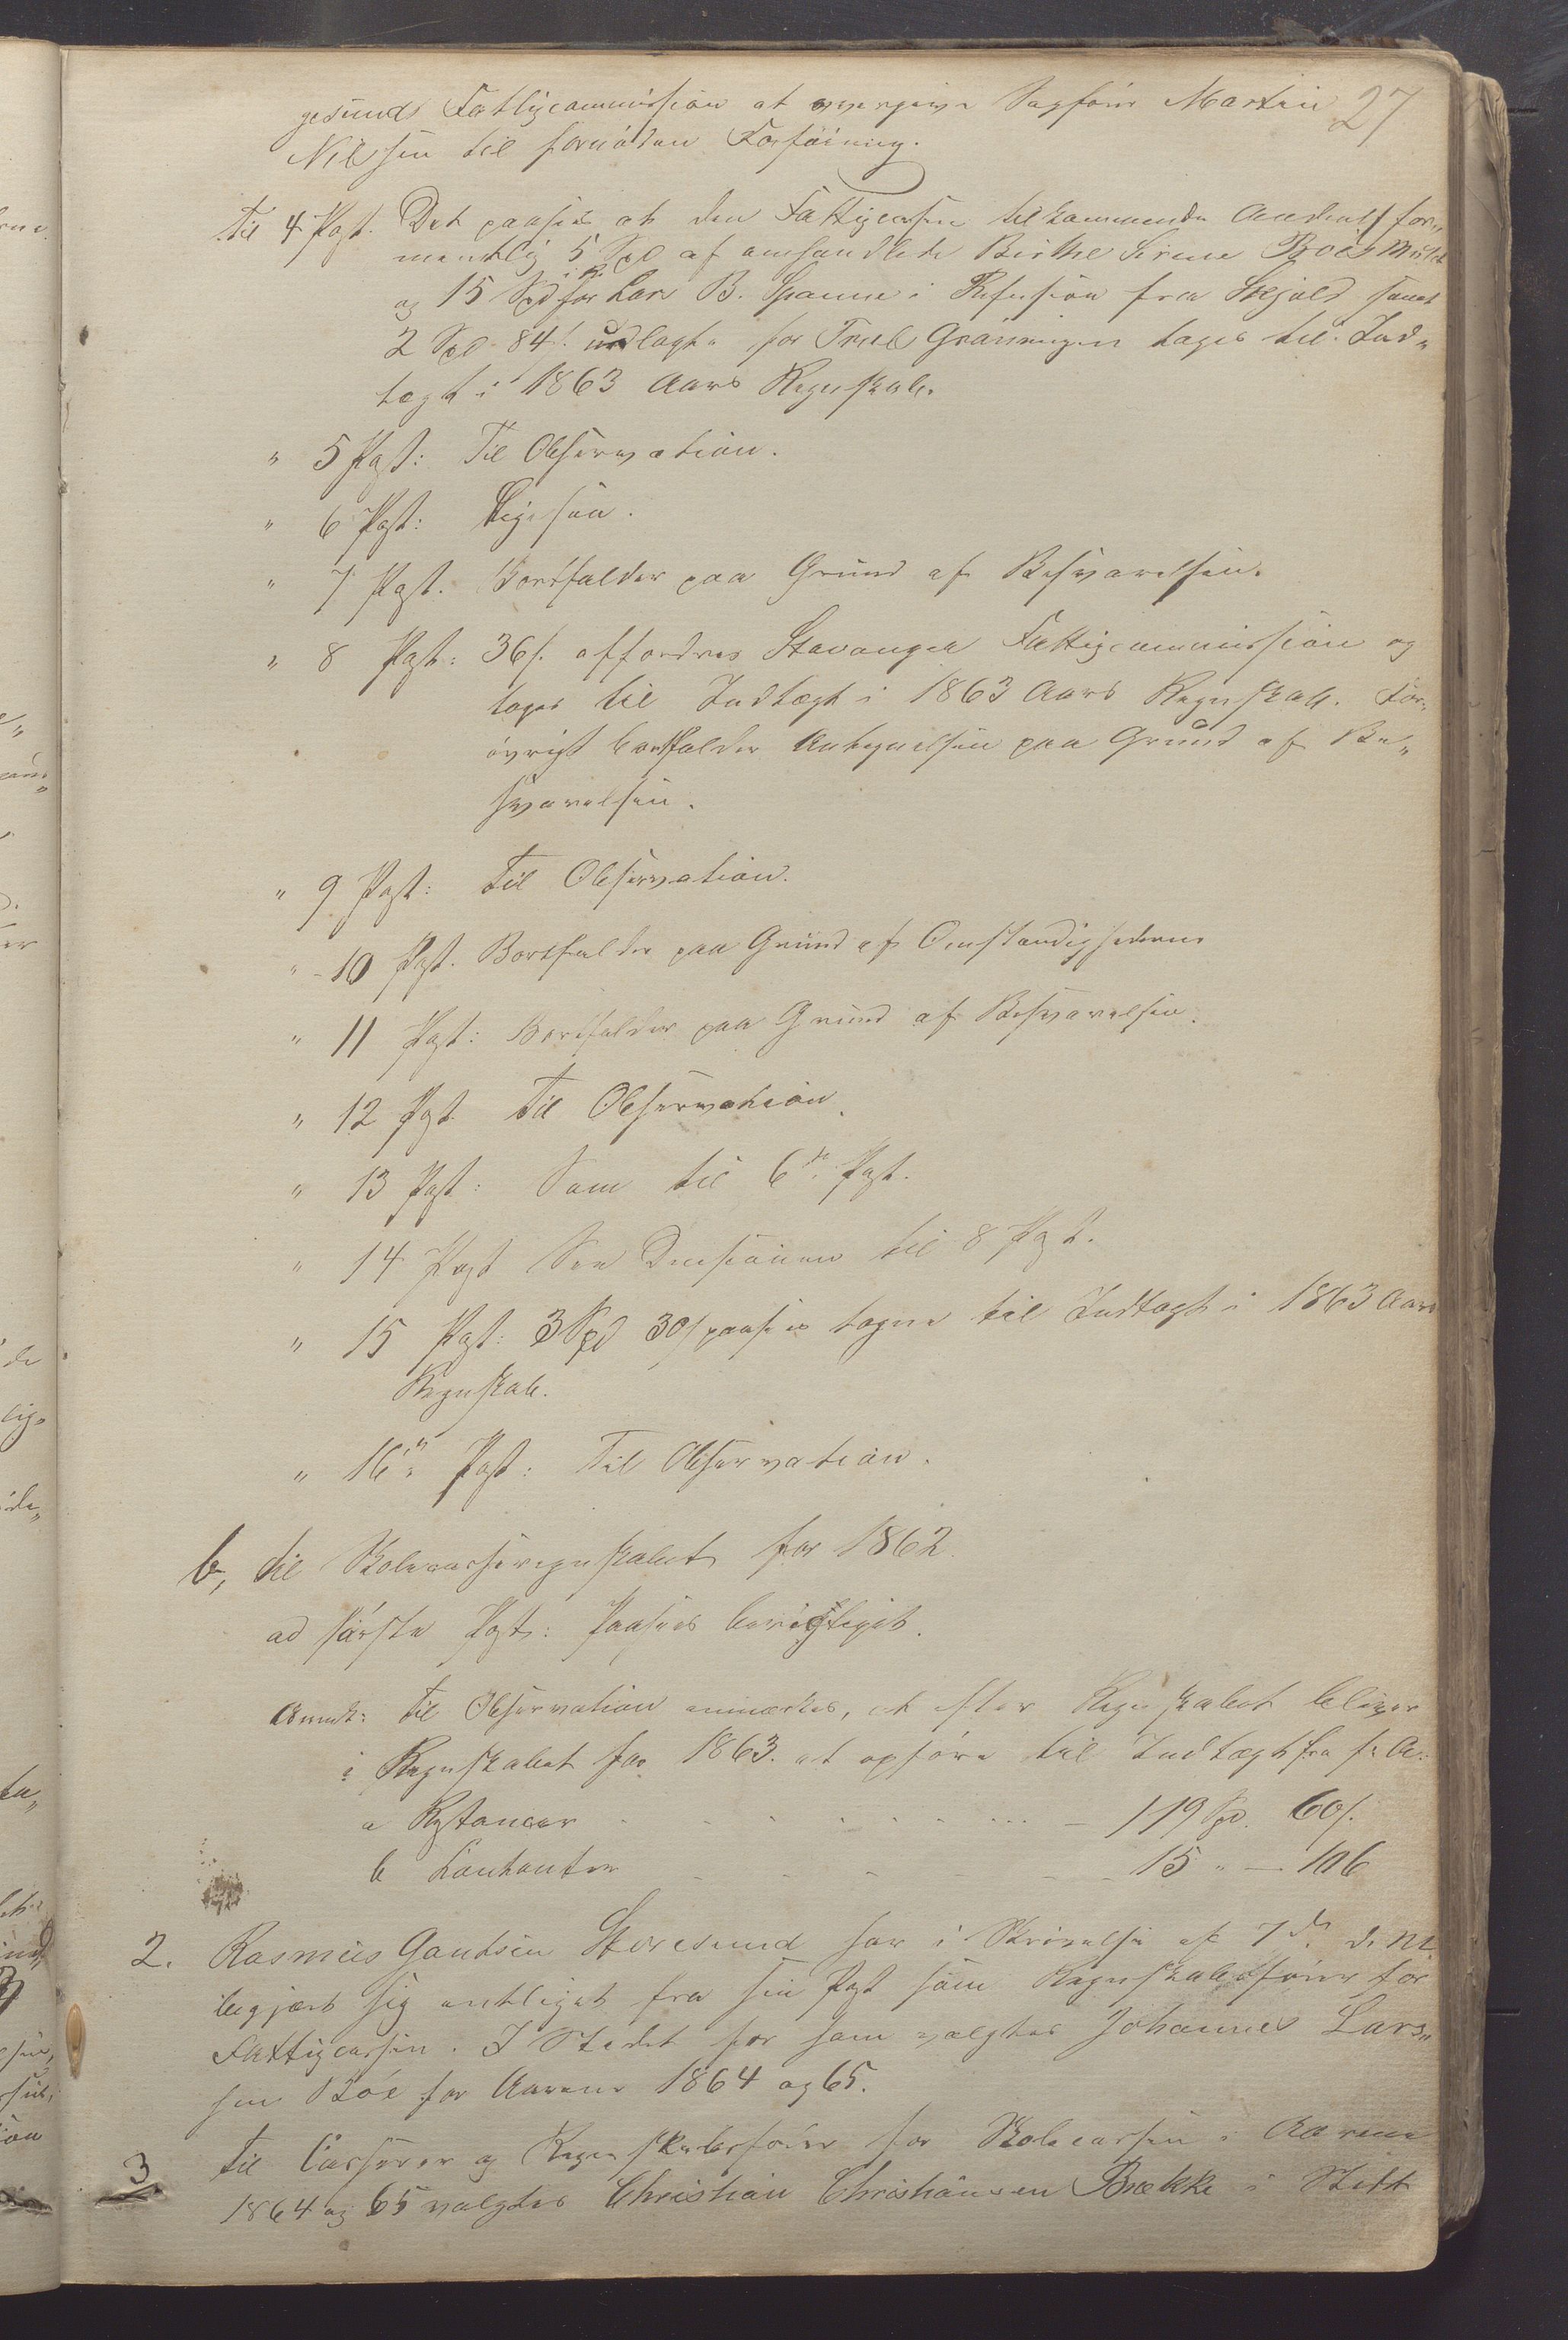 27
gesunds Fattigcommission at overgive Sagfører Martin
Nilsen til fornøden Forføining.
Til 4 Post. Det paasees at den Fattigcassen tilkommende Andeel for„
mentlig 5 Spd af Birthe Serine Boes
og 15 Spd for Lars B. Spanne i Refusion fra Skjold samt
2 Spd 84 s. udlagt for Grønningen tages til Ind„
tægt i 1863 Aars Regnskab.
" 5 Post: Til Observation.
" 6 Post: Ligesaa.
" 7 Post. Bortfalder paa Grund af Besvarelsen.
" 8 Post: 36 s. affordres Stavanger Fattigcommission og
tages til Indtægt i 1863 Aars Regnskab. For„
øvrigt bortfalder Antegnelsen paa Grund af Be„
svarelsen.
" 9 Post: Til Observation.
" 10 Post. Bortfalder paa Grund af Omstændighederne
" 11 Post: Bortfalder paa Grund af Besvarelsen.
" 12 Post Til Observation.
" 13 Post: Som til 6te Post.
" 14 Post See Decisionen til 8 Post.
" 15 Post: 3 Spd 30 s paasees tagne til Indtægt i 1863 Aars
Regnskab.
" 16de Post: Til Observation.
b, til Skolecasseregnskabet for 1862.
ad første Post: Paasees berigtiget.
Anmk: Til Observation anmærkes, at efter Regnskabet bliver
i Regnskabet for 1863 at opføre til Indtægt fra f. A:
a Restancer - - - 119 Spd. 60 s.
b Contanter - - - 15 " — 106
2. Rasmus Gautsen Storesund har i Skrivelse af 7de d. M.
begjært sig entlediget fra sin Post som Regnskabsfører for
Fattigcassen. I Stedet for ham valgtes Johannes Lars„
sen Bøe for Aarene 1864 og 65.
3 Til Casserer og Regnskabsfører for Skolecassen i Aarene
1864 og 65 valgtes Christian Christiansen Brekke i Stedet